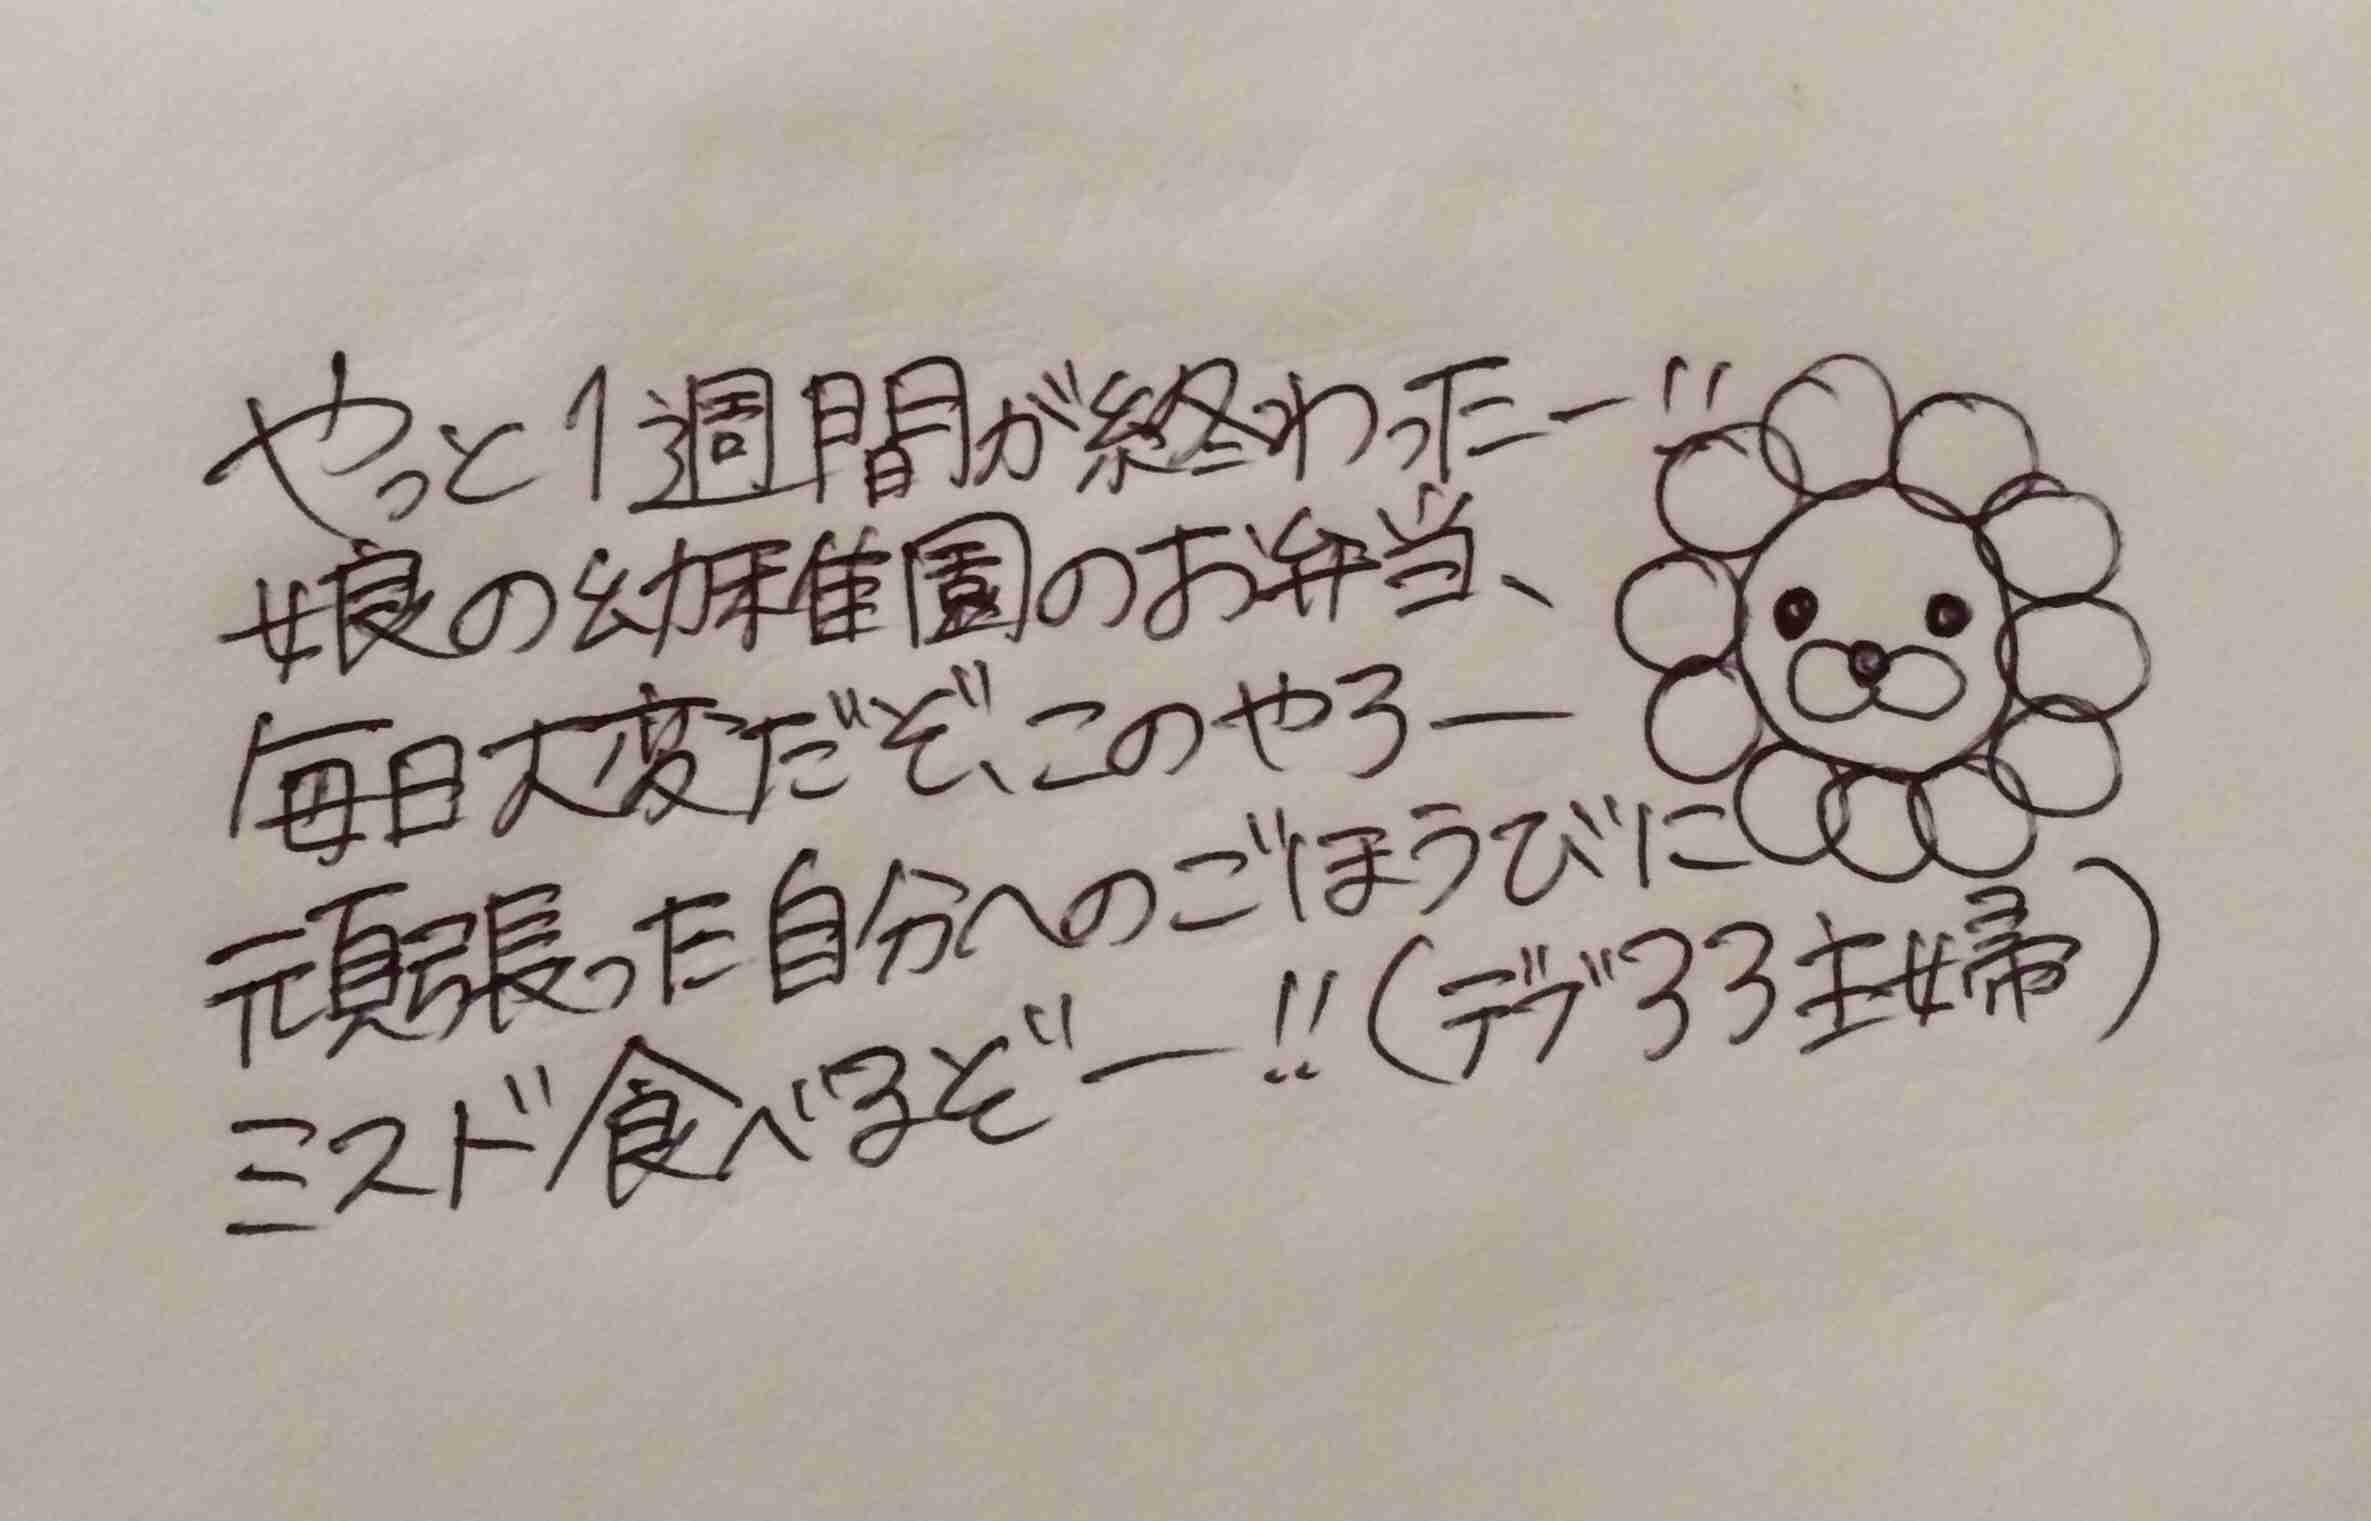 やっと1週間が終わったー!!
娘の幼稚園のお弁当、
毎日大変だぞ、このやろー
頑張った自分へのごほうびに
ミスド食べるぞー!!(デブ33主婦)